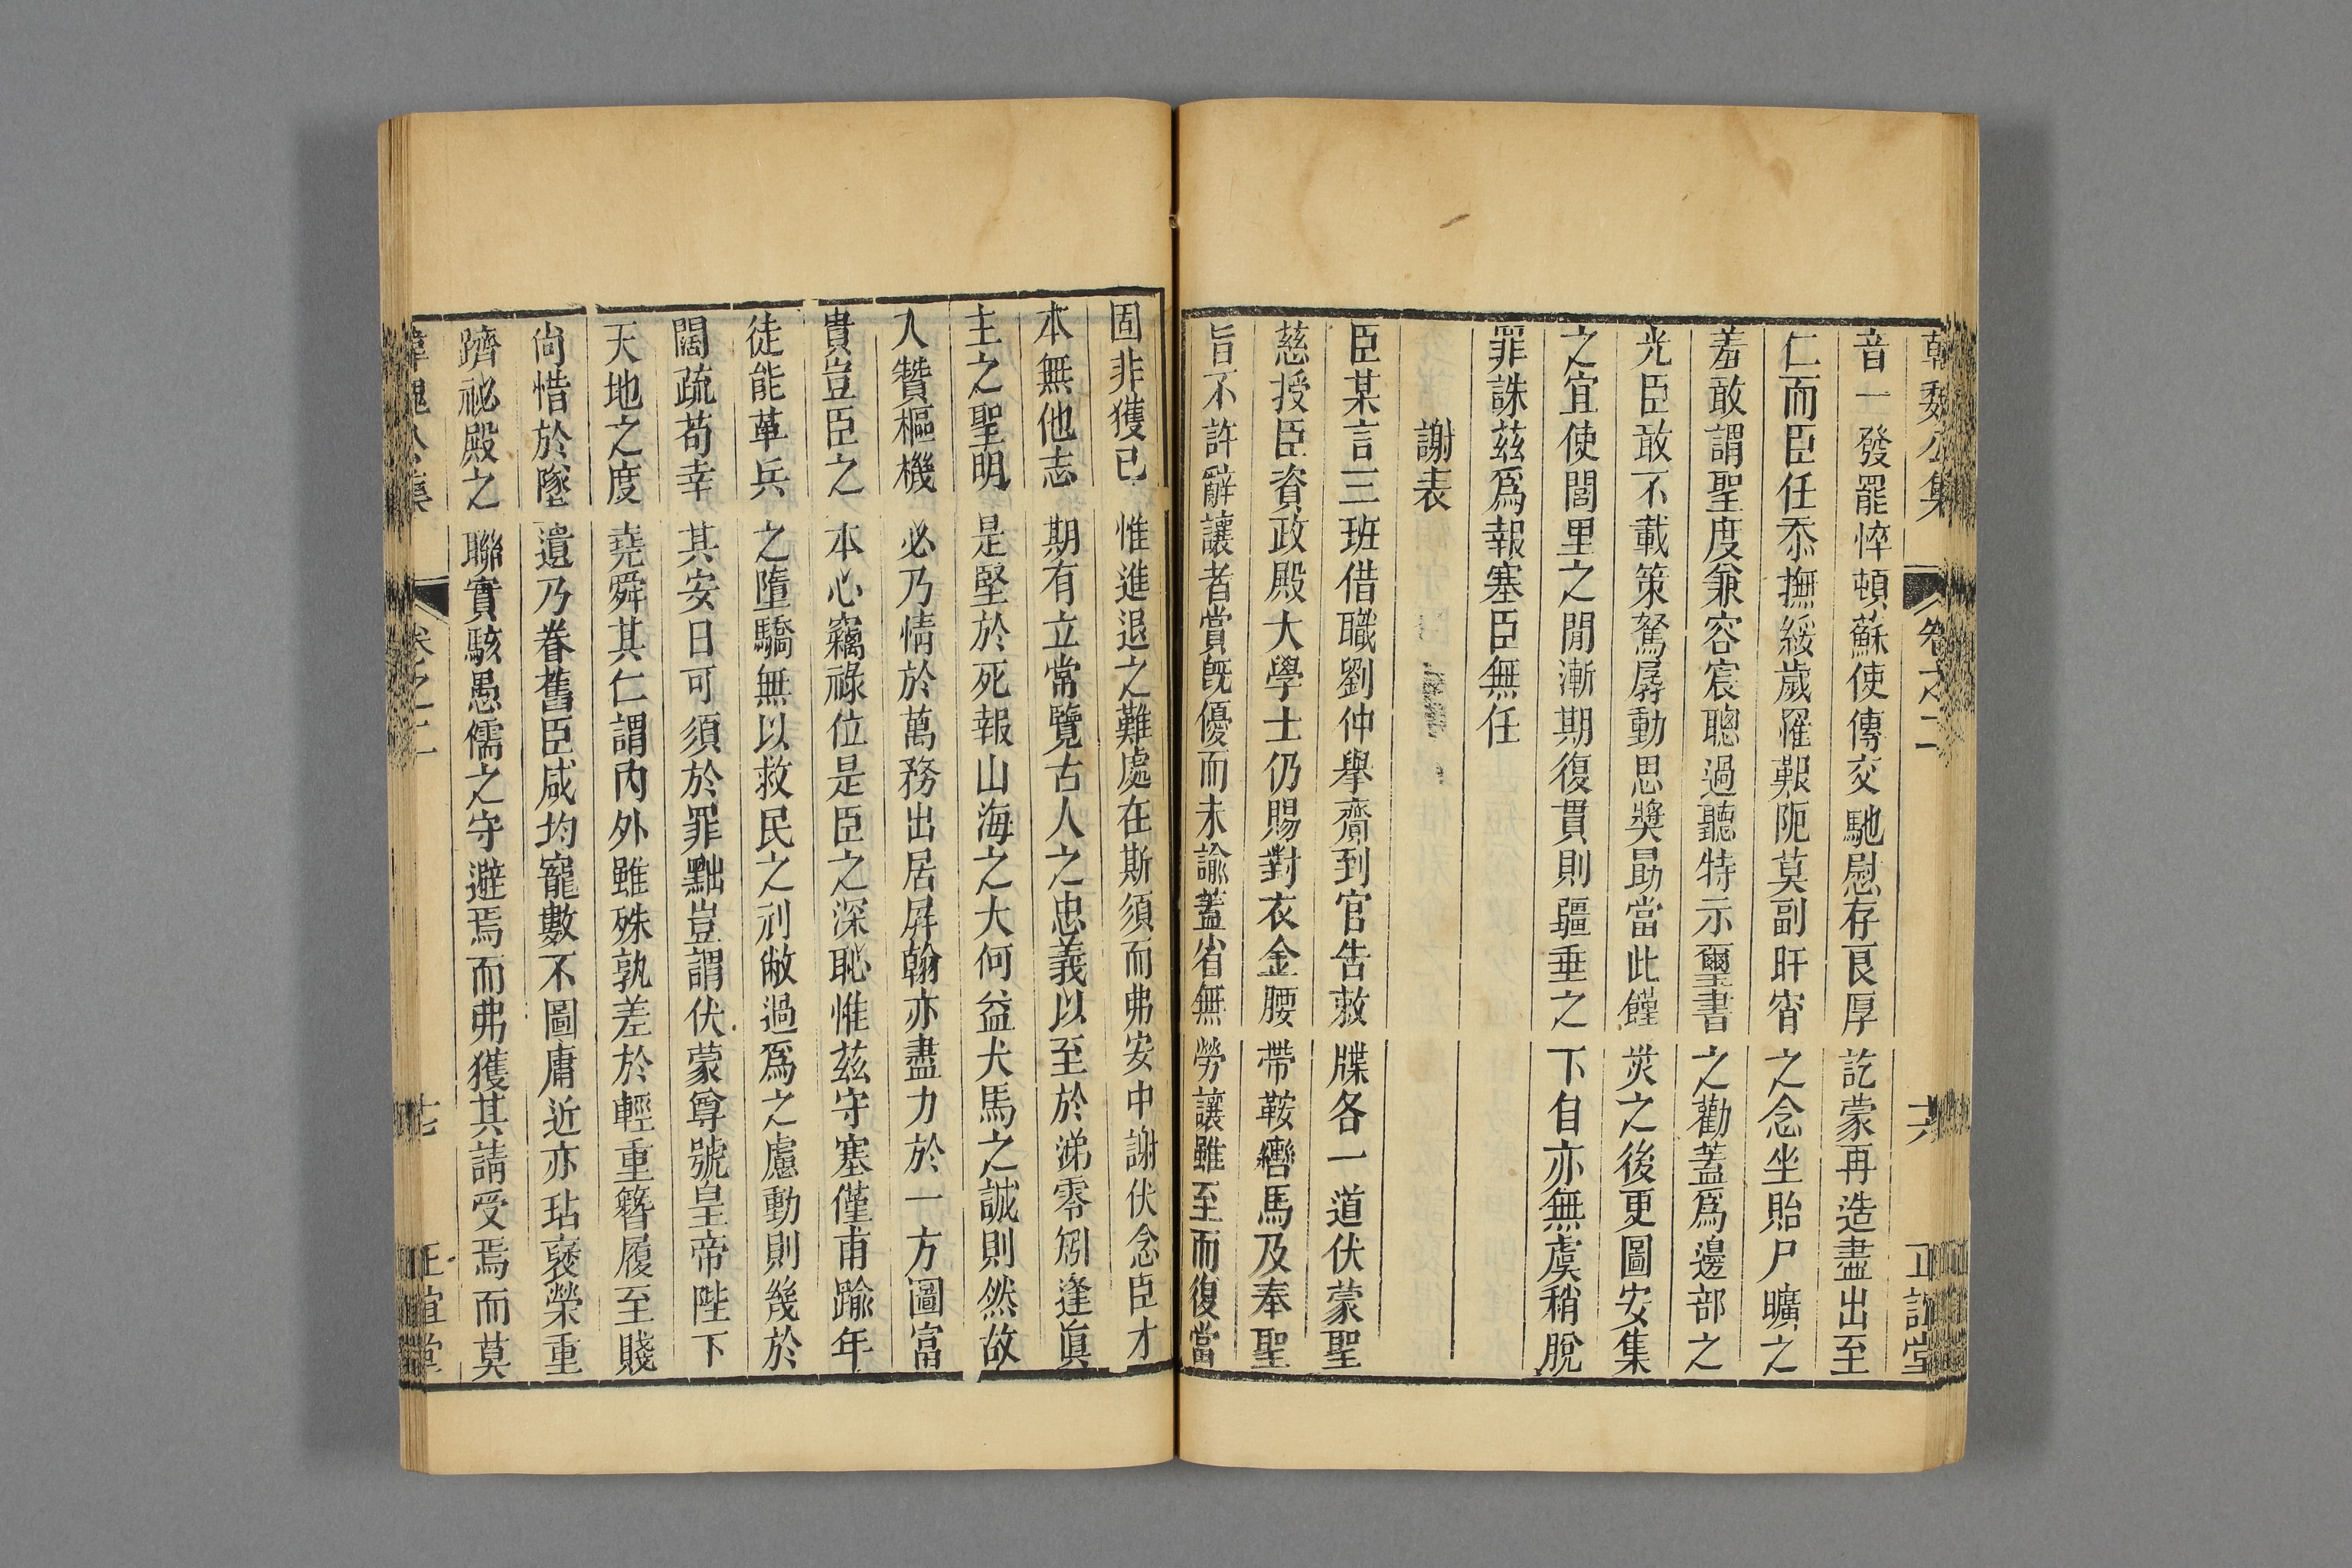 韓魏公集 卷之二 六 正誼堂
音一發罷悴頓蘇使傳交馳慰存良厚訖蒙再造盡出至
仁而臣任忝撫綏歲罹艱阨莫副旰宵之念坐貽尸曠之
羞敢謂聖度兼容宸聰過聽特示璽書之勸蓋爲邊部之
光臣敢不載策駑孱動思獎勗當此饉災之後更圖安集
之宜使閭里之閒漸期復貫則疆垂之下自亦無虞稍脫
罪誅茲爲報塞臣無任
謝表
臣某言三班借職劉仲舉齎到官告敕牒各一道伏蒙聖
慈授臣資政殿大學士仍賜對衣金腰帶鞍轡馬及奉聖
旨不許辭讓者賞旣優而未諭蓋省無勞讓雖至而復當
固非獲已惟進退之難處在斯須而弗安中謝伏念臣才
本無他志期有立常覽古人之忠義以至於涕零矧逢眞
主之聖明是堅於死報山海之大何益犬馬之誠則然故
入贊樞機必乃情於萬務出居屛翰亦盡力於一方圖富
貴豈臣之本心竊祿位是臣之深恥惟茲守塞僅甫踰年
徒能革兵之墮驕無以救民之刓敝過爲之慮動則幾於
闊疏苟幸其安日可須於罪黜豈謂伏蒙尊號皇帝陛下
天地之度堯舜其仁謂內外雖殊孰差於輕重簪履至賤
尙惜於墜遺乃眷舊臣咸均寵數不圖庸近亦玷褒榮重
躋祕殿之聯實駭愚儒之守避焉而弗獲其請受焉而莫
韓魏公集 卷之二 七 正誼堂